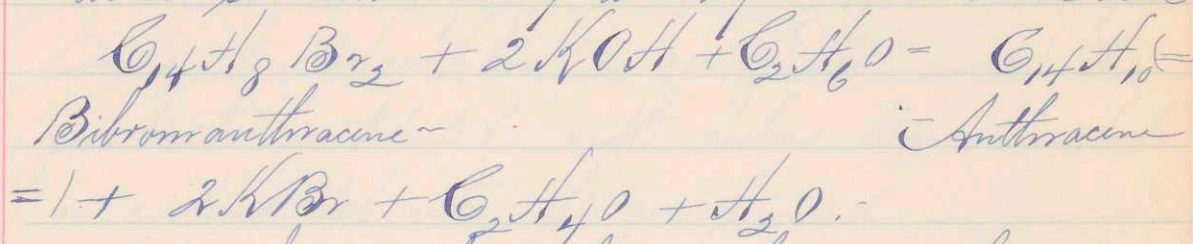 C₁₄H₈Br₂ + 2KOH + C₂H₆O = C₁₄H₁₀(=
Bibromanthracene - Anthracene
=) + 2KBr + C₂H₄O + H₂O.-